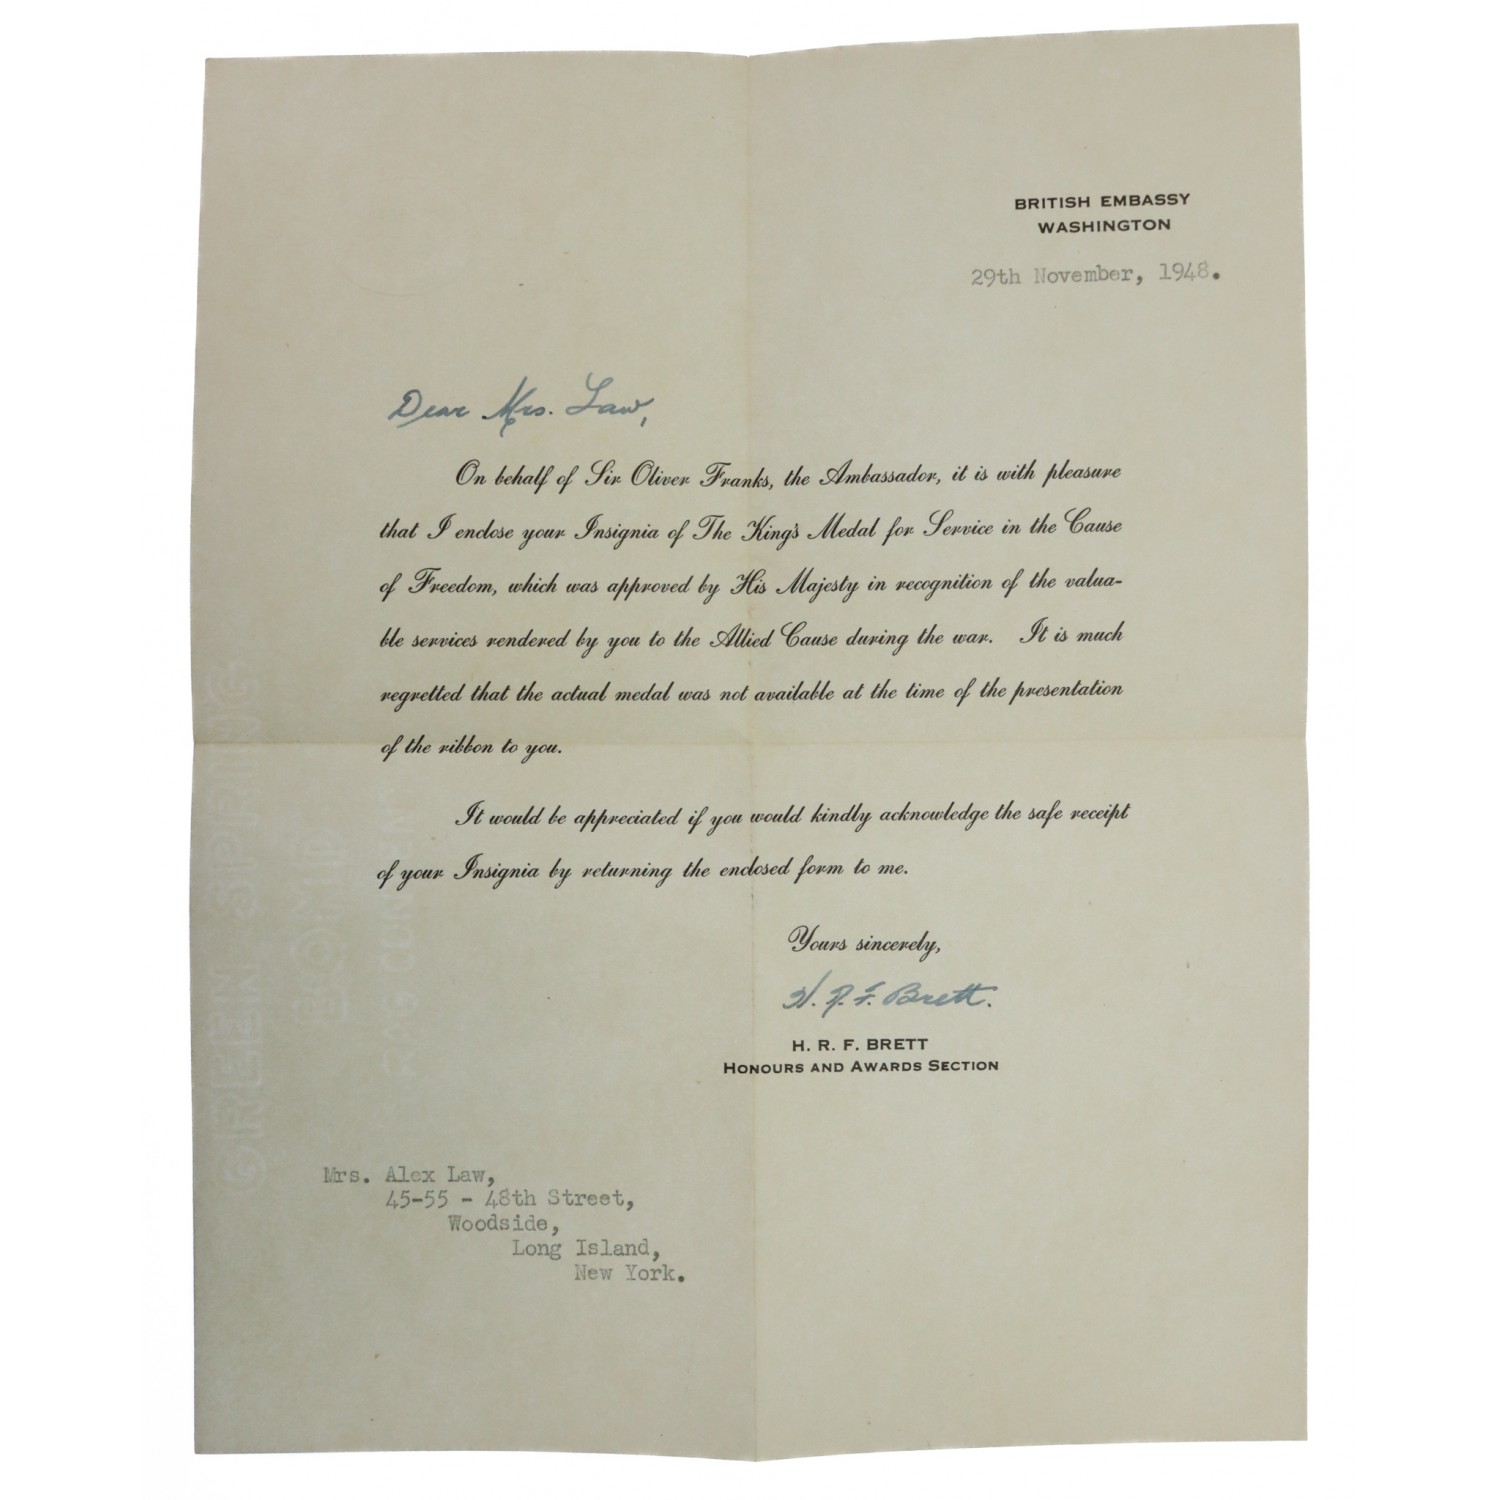 BRITISH EMBASSY
WASHINGTON
29th November, 1948.
Dear Mrs. Law,
On behalf of Sir Oliver Franks, the Ambassador, it is with pleasure
that I enclose your Insignia of The King's Medal for Service in the Cause
of Freedom, which was approved by His Majesty in recognition of the valua-
ble services rendered by you to the Allied Cause during the war. It is much
regretted that the actual medal was not available at the time of the presentation
of the ribbon to you.
It would be appreciated if you would kindly acknowledge the safe receipt
of your Insignia by returning the enclosed form to me.
Yours sincerely,
H. R. F. Brett.
H. R. F. BRETT
HONOURS AND AWARDS SECTION
Mrs. Alex Law,
45-55 - 48th Street,
Woodside,
Long Island,
New York.